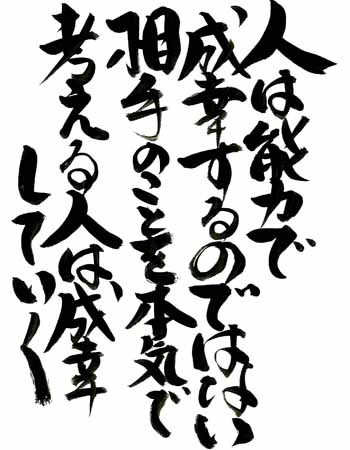 人は能力で
成幸するのではない
相手のことを本気で
考える人は、成幸
していく